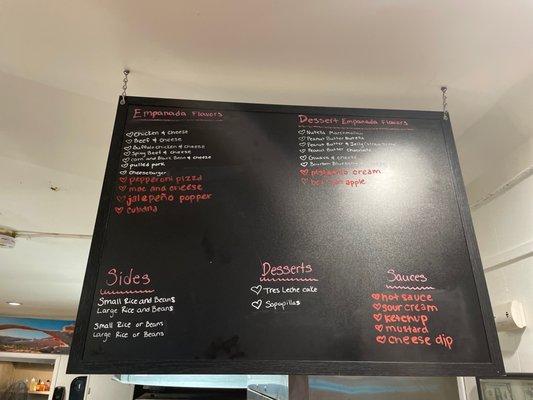 Empanada Flavors
Chicken & cheese
Beef & cheese
Buffalo chicken & cheese
Spicy Beef & cheese
corn and Black Bean & cheese
pulled pork
cheeseburger
pepperoni pizza
mac and cheese
jalapeño popper
cubana
Dessert Empanada Flavors
Nutella Marshmallow
Peanut Butter Nutella
Peanut Butter & Jelly
Peanut Butter Chocolate
Guava & cheese
Bourbon Blueberry
pistachio cream
apple
Sides
Small Rice and Beans
Large Rice and Beans
Small Rice or Beans
Large Rice or Beans
Desserts
Tres Leche cake
Sopapillas
Sauces
hot sauce
sour cream
ketchup
mustard
cheese dip